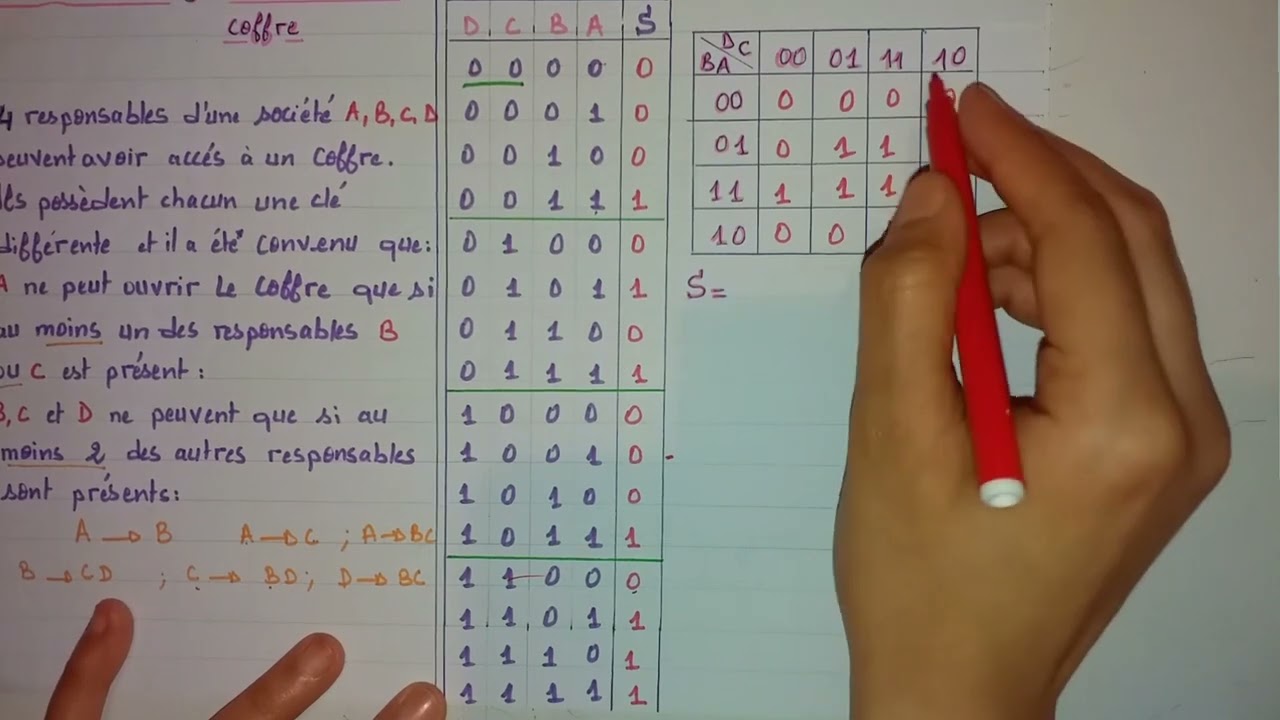 coffre
4 responsables d'une société A, B, C, D
peuvent avoir accés à un coffre.
Ils possèdent chacun une clé
différente et il a été convenu que:
A ne peut ouvrir le coffre que si
au moins un des responsables B
ou C est présent:
B, C et D ne peuvent que si au
moins 2 des autres responsables
sont présents:
A → B A → C ; A → BC
B → CD ; C → BD ; D → BC
D C B A S
0 0 0 0 0
0 0 0 1 0
0 0 1 0 0
0 0 1 1 1
0 1 0 0 0
0 1 0 1 1
0 1 1 0 0
0 1 1 1 1
1 0 0 0 0
1 0 0 1 0
1 0 1 0 0
1 0 1 1 1
1 1 0 0 0
1 1 0 1 1
1 1 1 0 1
1 1 1 1 1
DC
BA 00 01 11 10
00 0 0 0 0
01 0 1 1
11 1 1 1
10 0 0
S=